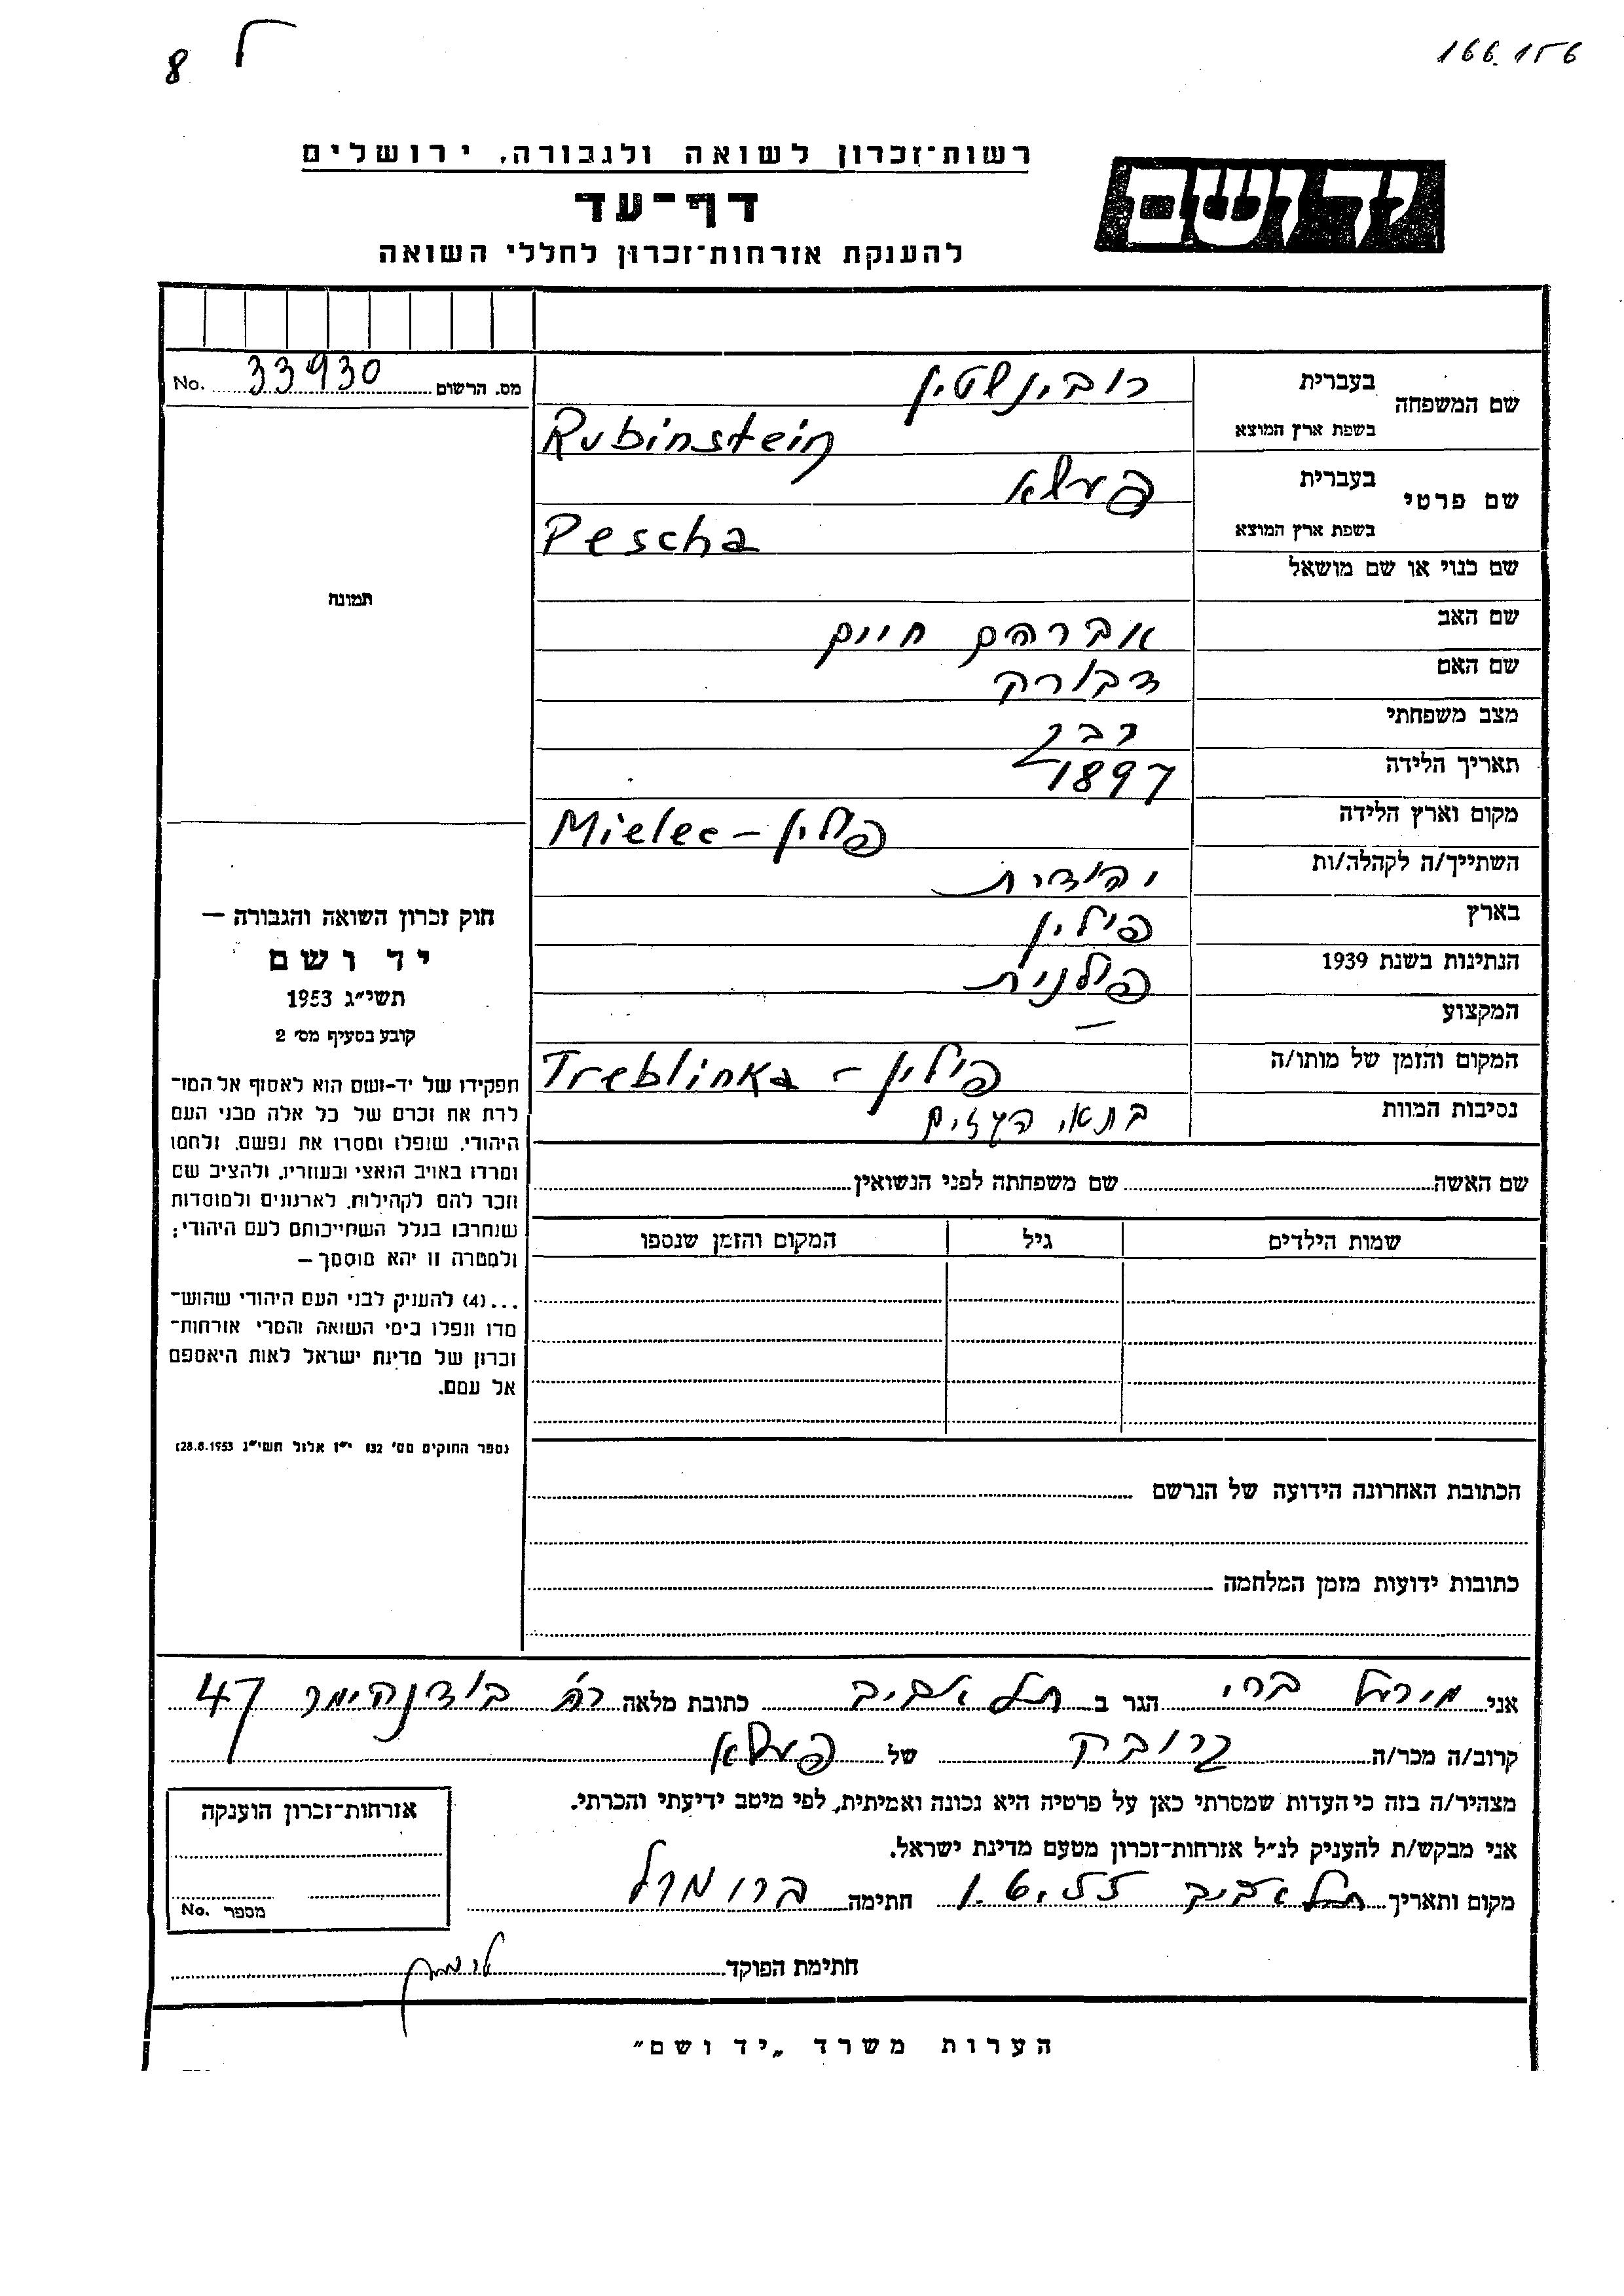 166.156
8
רשות־זכרון לשואה ולגבורה, ירושלים
יד ושם
דף־עד
להענקת אזרחות־זכרון לחללי השואה
מס. הרשום 33930 No.
שם המשפחה בעברית רובינשטין
בשפת ארץ המוצא Rubinstein
שם פרטי בעברית פעשא
בשפת ארץ המוצא Pescha
שם כנוי או שם מושאל
תמונה
שם האב אברהם חיים
שם האם דבורה
מצב משפחתי
תאריך הלידה 1897
מקום וארץ הלידה Mielec – פולין
השתייך/ה לקהלה/ות יהודית
בארץ פולין
הנתינות בשנת 1939 פולנית
המקצוע —
המקום והזמן של מותו/ה Treblinka – פולין
נסיבות המוות בתאי הגזים
חוק זכרון השואה והגבורה —
יד ושם
תשי״ג 1953
קובע בסעיף מס׳ 2
תפקידו של יד-ושם הוא לאסוף אל המו־
לדת את זכרם של כל אלה מבני העם
היהודי, שנפלו ומסרו את נפשם, נלחמו
ומרדו באויב הנאצי ובעוזריו, ולהציב שם
וזכר להם לקהילות, לארגונים ולמוסדות
שנחרבו בגלל השתייכותם לעם היהודי;
ולמטרה זו יהא מוסמך —
...(4) להעניק לבני העם היהודי שהוש־
מדו ונפלו בימי השואה והמרי אזרחות־
זכרון של מדינת ישראל לאות היאספם
אל עמם.
(ספר החוקים מס׳ 132 י״ז אלול תשי״ג 28.8.1953)
שם האשה שם משפחתה לפני הנשואין
שמות הילדים גיל המקום והזמן שנספו
הכתובת האחרונה הידועה של הנרשם
כתובות ידועות מזמן המלחמה
אני הגר ב תל אביב כתובת מלאה רח בודנהימר 47
קרוב/ה מכר/ה קרובה של פעשא
מצהיר/ה בזה כי העדות שמסרתי כאן על פרטיה היא נכונה ואמיתית, לפי מיטב ידיעתי והכרתי.
אני מבקש/ת להעניק לנ״ל אזרחות־זכרון מטעם מדינת ישראל.
מקום ותאריך תל אביב 1.6.55 חתימה
אזרחות־זכרון הוענקה
מספר No.
חתימת הפוקד
הערות משרד „יד ושם״